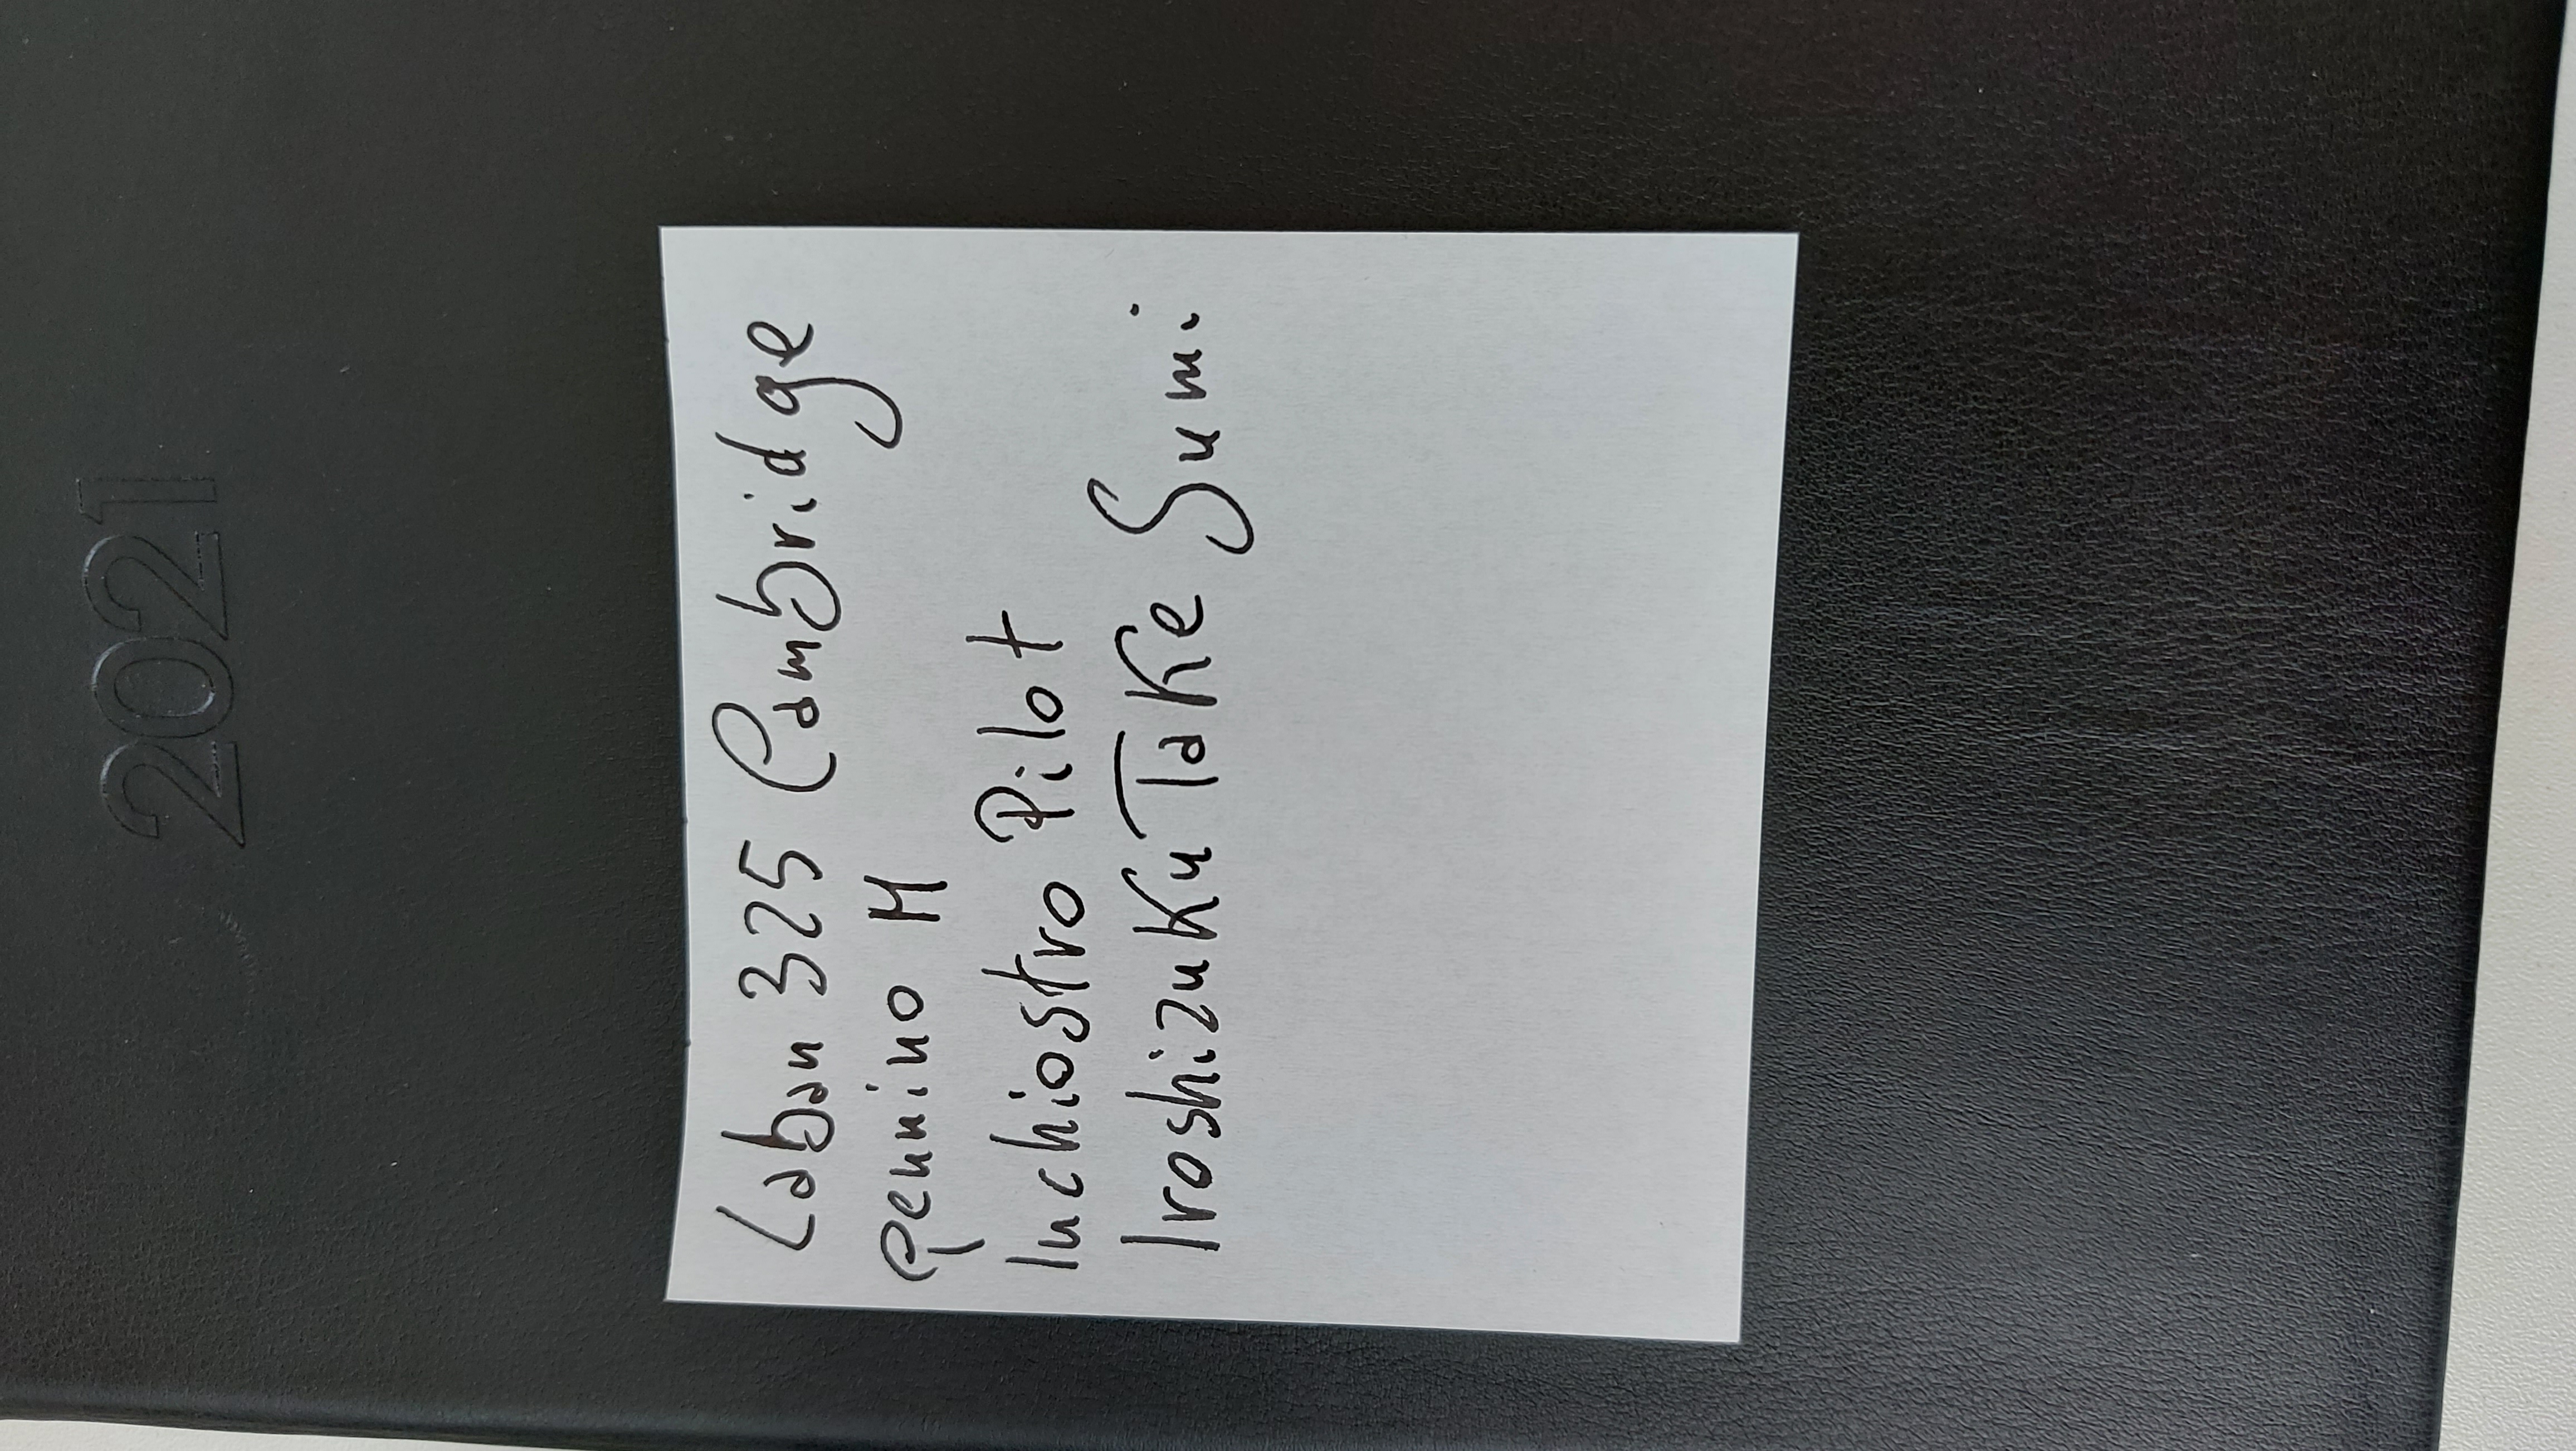 2021
Laban 325 Cambridge
pennino M
Inchiostro Pilot
Iroshizuku Take Sumi